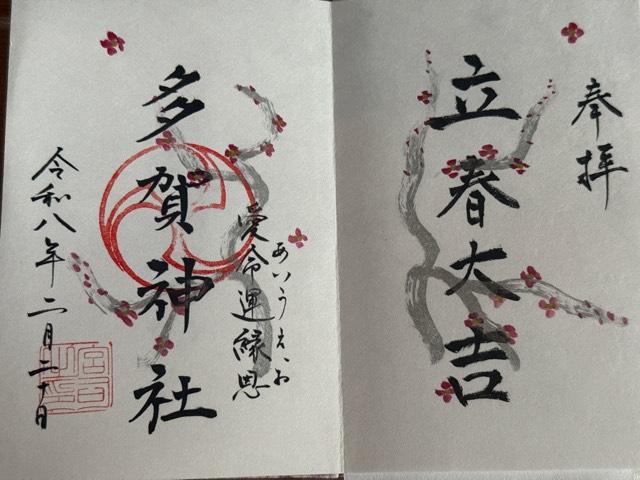 奉拝
立春大吉
あいうえお
愛命運縁恩
多賀神社
令和八年二月二十日